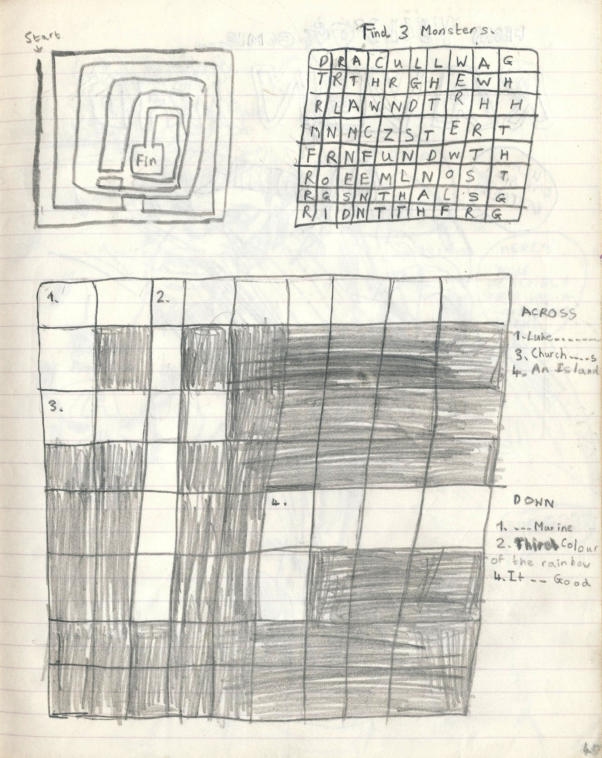 Start
Find 3 Monsters.
D R A C U L L W A G
T R T H R G H E W H
R L A W N D T R H H
M N M C Z S T E R T
F R N F U N D W T H
R O E E M L N O S T
R G S N T H A L S G
R I D N T T H F R G
Fin
1. 2.
3.
4.
ACROSS
1. Luke.......
3. Church....s
4. An Island
DOWN
1. ---Marine
2. Colour
of the rainbow
4. It -- Good
40